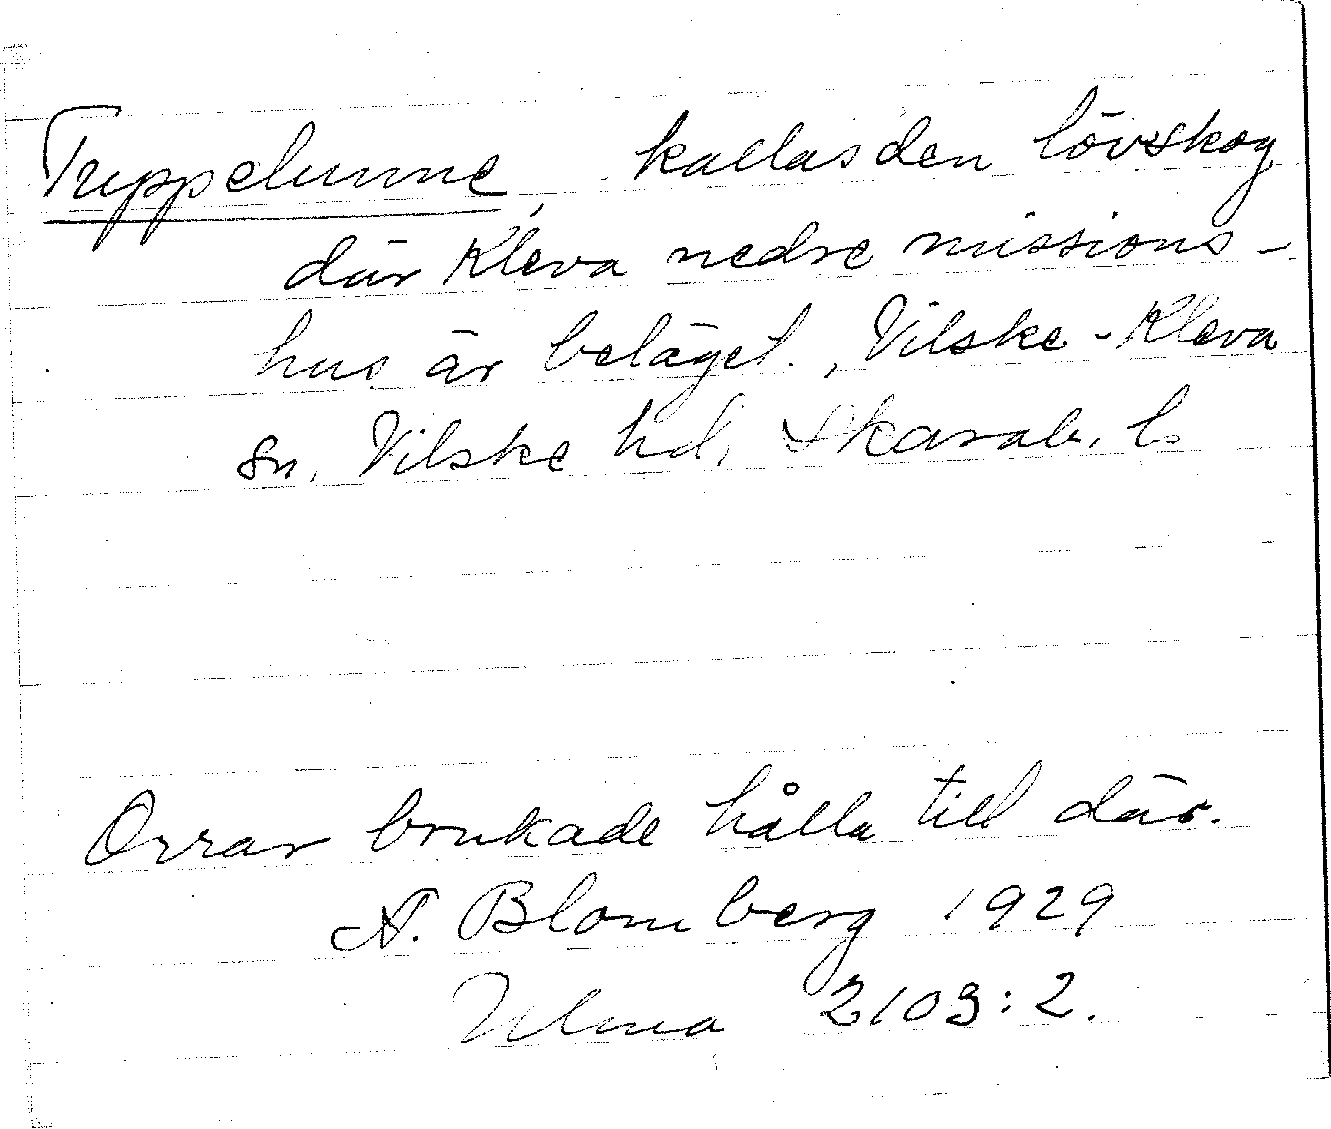 Treppelunne, kallas den lövskog
där Kleva nedre missions-
hus är beläget., Vilske-Kleva
sn, Vilske hd, Skarab. l.
Orrar brukade hålla till där.
A. Blomberg 1929
Ulma 2103:2.